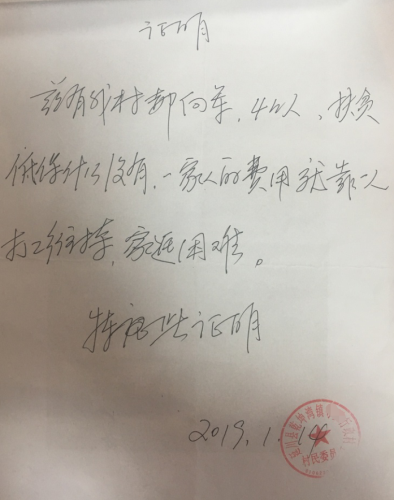 证明
兹有我村郭向军，4口人，扶贫
低保什么没有，一家人的费用就靠一人
打工维持，家庭困难。
特此证明
2019.1.19
村民委